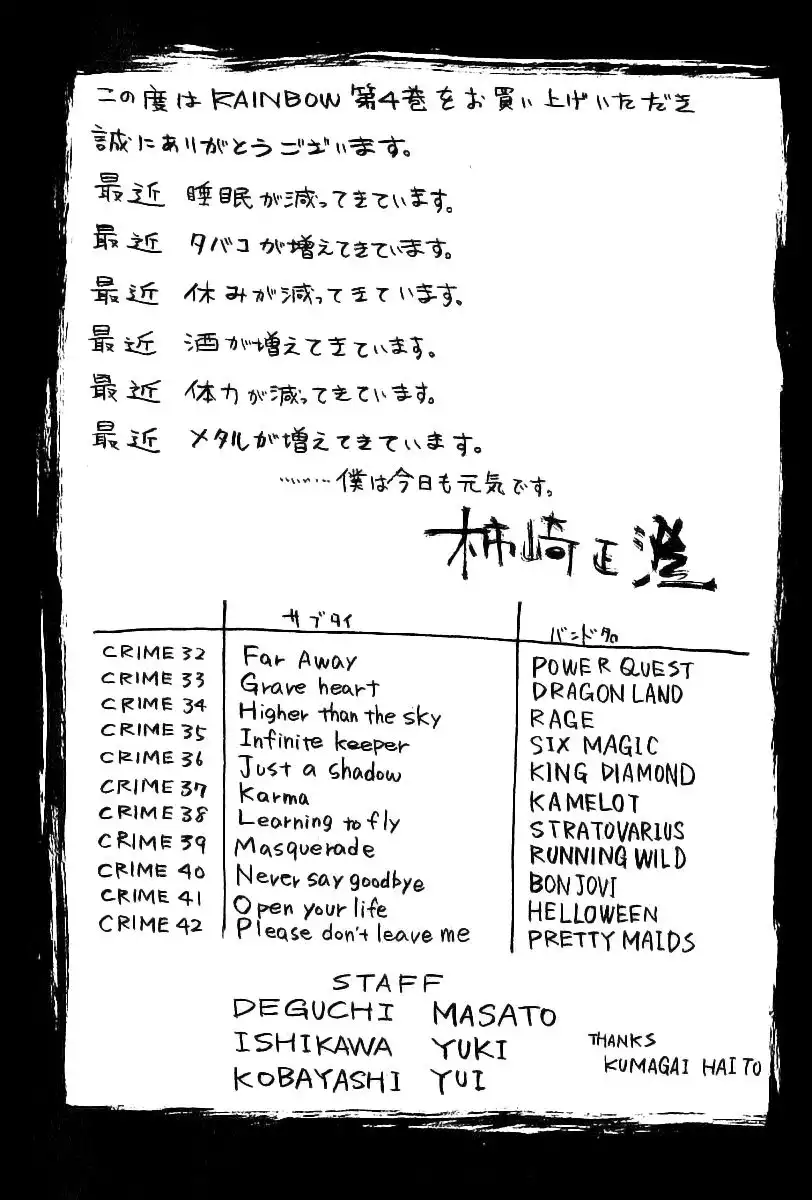 この度は RAINBOW 第4巻をお買い上げいただき
誠にありがとうございます。
最近 睡眠が減ってきています。
最近 タバコが増えてきています。
最近 休みが減ってきています。
最近 酒が増えてきています。
最近 体力が減ってきています。
最近 メタルが増えてきています。
………僕は今日も元気です。
柿崎正澄
サブタイ バンド名
CRIME 32 Far Away POWER QUEST
CRIME 33 Grave heart DRAGON LAND
CRIME 34 Higher than the sky RAGE
CRIME 35 Infinite keeper SIX MAGIC
CRIME 36 Just a shadow KING DIAMOND
CRIME 37 Karma KAMELOT
CRIME 38 Learning to fly STRATOVARIUS
CRIME 39 Masquerade RUNNING WILD
CRIME 40 Never say goodbye BON JOVI
CRIME 41 Open your life HELLOWEEN
CRIME 42 Please don't leave me PRETTY MAIDS
STAFF
DEGUCHI MASATO
ISHIKAWA YUKI
KOBAYASHI YUI
THANKS
KUMAGAI HAITO